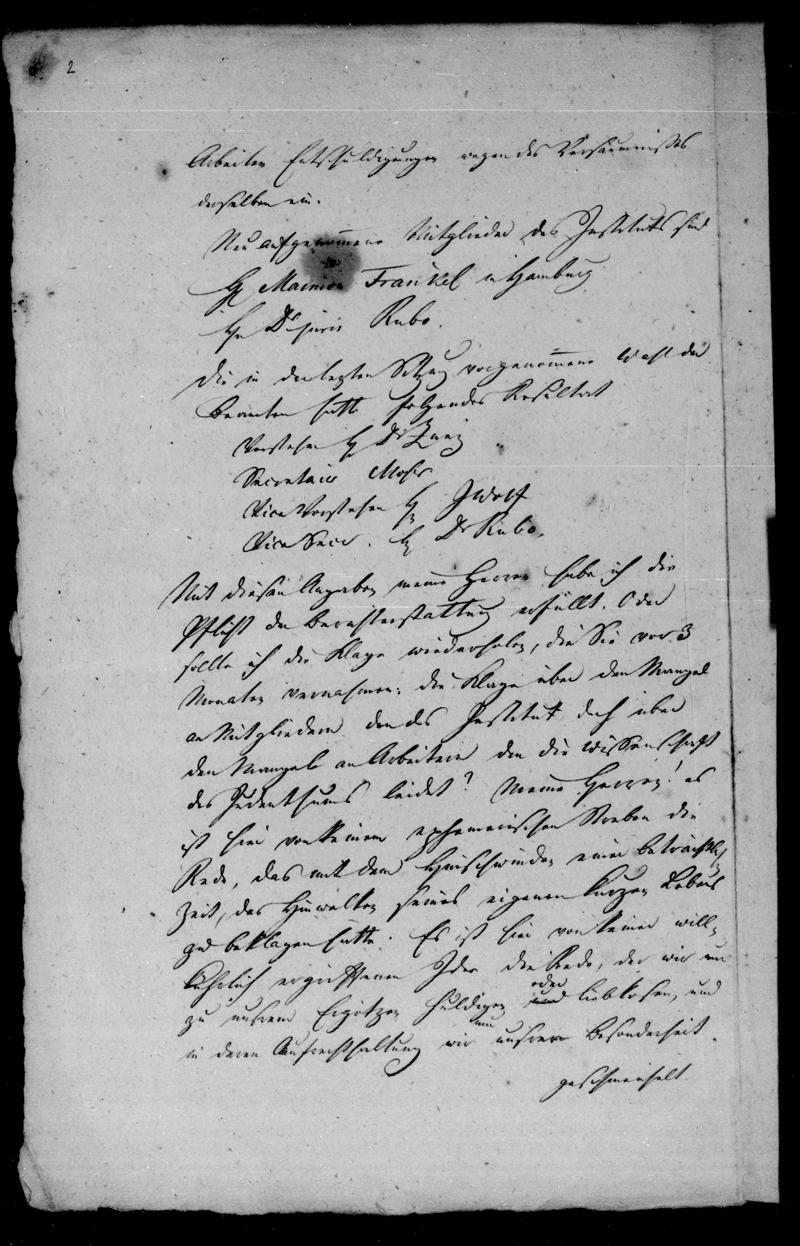 2
Arbeiten Entschuldigungen wegen des Versäumnisses
derselben ein.
Neu aufgenommene Mitglieder des Instituts sind
H Maimon Fraenkel in Hamburg
Hr Dr juris Rubo.
Die in der letzten Sitzung vorgenommene Wahl der
Beamten hatte folgendes Resultat
Vorsteher H Dr Zunz
Secretair Moser
Vice Vorsteher H J Wolf
Vice Secr. H Dr Rubo.
Mit diesen Angaben meine Herren habe ich die
Pflicht der Berichterstattung erfüllt. Oder
sollte ich die Klage wiederholen, die Sie vor 3
Monaten vernahmen: die Klage über den Mangel
an Mitgliedern den das Institut doch über
den Mangel an Arbeitern den die Wissenschaft
des Judenthums leidet? Meine Herren! es
ist hier von keinem ephemerischen Streben die
Rede, das mit dem Hinschwinden einer beträchtl
Zeit, das Hinwelken seines eigenen kurzen Lebens
zu beklagen hätte. Es ist hier von keiner will-
kührlich ergriffenen Idee die Rede, der wir nur
zu unserem Ergötzen huldigen oder liebkosen, und
in deren Aufrechthaltung wir nur unsrer Besonderheit
geschmeichelt